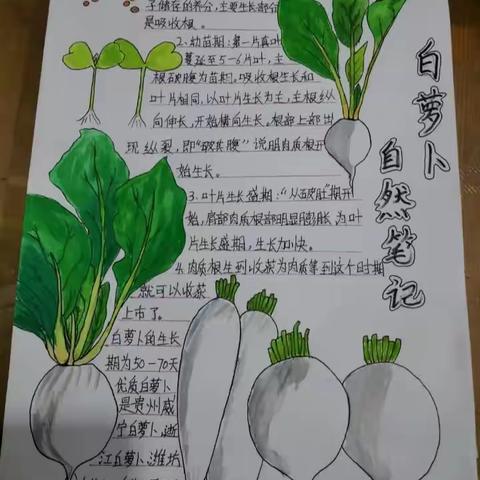 白萝卜
自然笔记
子储存的养分，主要生长部分
是吸收根。
2、幼苗期：第一片真叶
蔓延至5-6片叶，主
根破腹为苗期，吸收根生长和
叶片相同，以叶片生长为主，主根纵
向伸长，开始横向生长。根部上部出
现纵裂，即"破腹"说明肉质根开
始生长。
3、叶片生长盛期："从破肚"期开
始，肩部肉质根部明显膨胀为叶
片生长盛期，生长加快。
4、肉质根生到收获为肉质等到这个时期
就可以收获
上市了。
白萝卜的生长
期为50-70天
优质白萝卜
是贵州威
宁白萝卜、浙
江白萝卜、潍坊